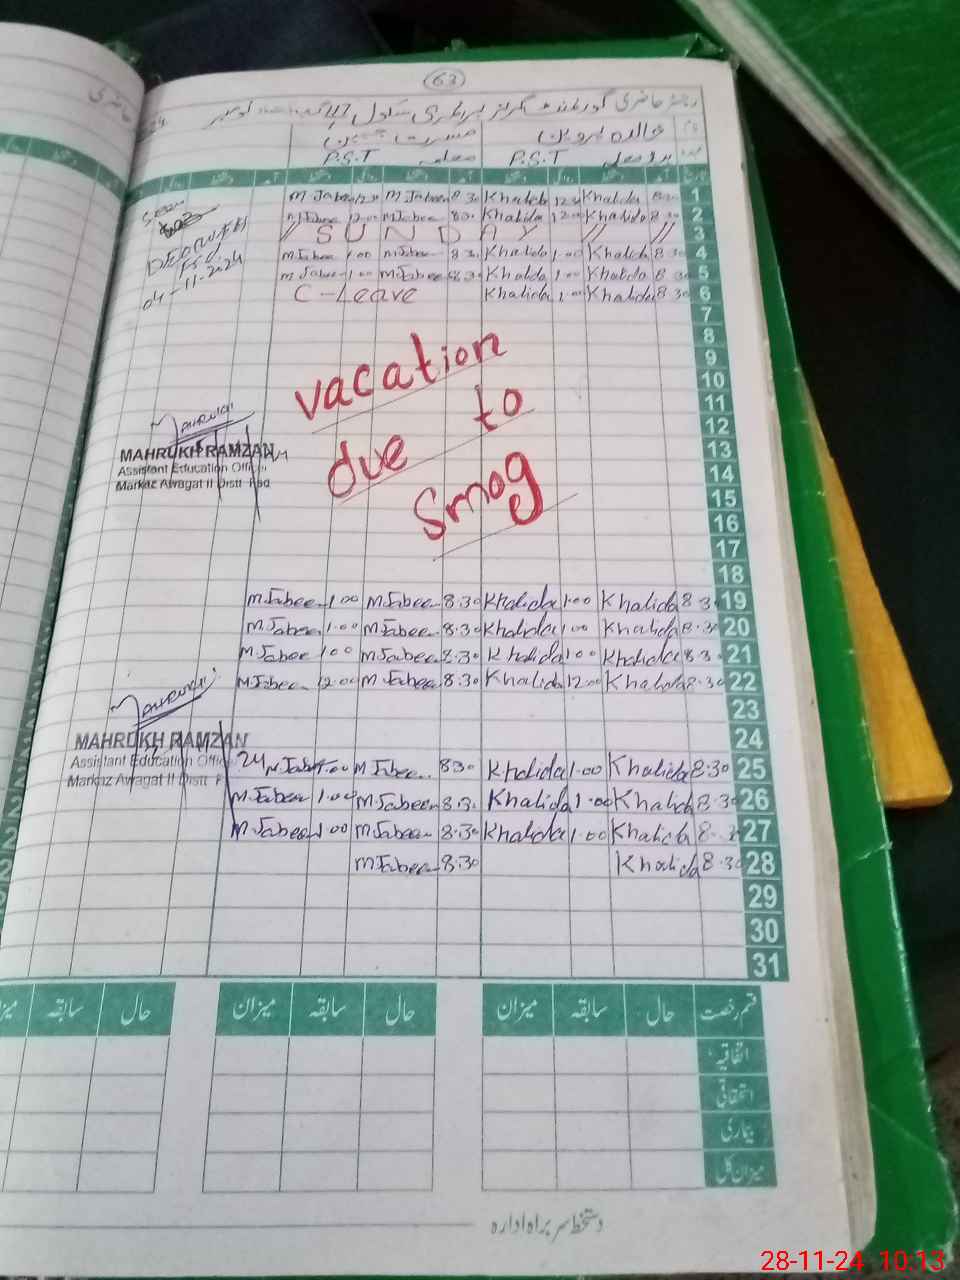 63
رجسٹر حاضری گورنمنٹ گرلز پرائمری سکول 47 نومبر 24
نام خالدہ پروین مسرت جبین
عہدہ معلمہ P.S.T معلمہ P.S.T
M Jabeen 12.00 M Jabeen 8.30 Khalida 12.00 Khalida 8.30 1
M Jabeen 12.00 M Jabeen 8.30 Khalida 12.00 Khalida 8.30 2
// SUNDAY // // 3
M Jabeen 1.00 M Jabeen 8.30 Khalida 1.00 Khalida 8.30 4
M Jabeen 1.00 M Jabeen 8.30 Khalida 1.00 Khalida 8.30 5
C-Leave Khalida 1.00 Khalida 8.30 6
Seen
DEO(W-EE)
FSD
04-11-2024
7
8
9
10
11
12
13
14
15
16
17
18
vacation
due to
smog
MAHRUKH RAMZAN
Assistant Education Officer
Markaz Awagat II Distt Fsd
M.Jabeen 1.00 M.Jabeen 8.30 Khalida 1.00 Khalida 8.30 19
M.Jabeen 1.00 M.Jabeen 8.30 Khalida 1.00 Khalida 8.30 20
M.Jabeen 1.00 M.Jabeen 8.30 Khalida 1.00 Khalida 8.30 21
M.Jabeen 12.00 M.Jabeen 8.30 Khalida 12.00 Khalida 8.30 22
23
24
MAHRUKH RAMZAN
Assistant Education Officer
Markaz Awagat II Distt F
M.Jabeen 1.00 M.Jabeen 8.30 Khalida 1.00 Khalida 8.30 25
M.Jabeen 1.00 M.Jabeen 8.30 Khalida 1.00 Khalida 8.30 26
M.Jabeen 1.00 M.Jabeen 8.30 Khalida 1.00 Khalida 8.30 27
M.Jabeen 8.30 Khalida 8.30 28
29
30
31
قسم رخصت حال سابقہ میزان حال سابقہ میزان حال سابقہ
اتفاقیہ
استحقاقی
بیماری
میزان کل
دستخط سربراہ ادارہ
28-11-24 10:13